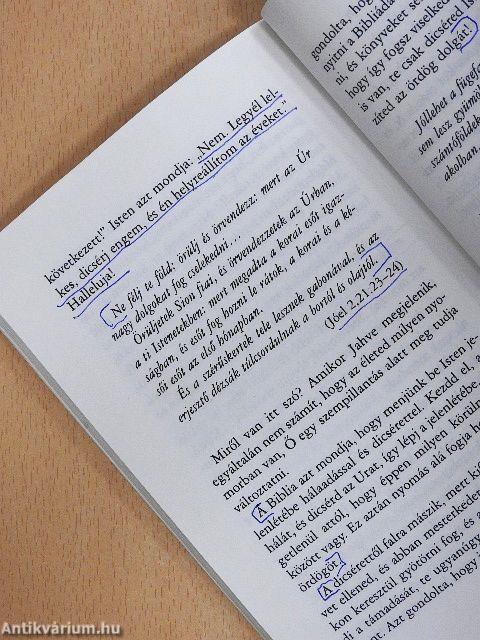 gondolta, hogy
nyitni a Bibliáda
ni, és könyveket se
hogy így fogsz viselked
is van, te csak dicséred Is
zíted az ördög dolgát!
Jóllehet a fügef
sem lesz gyümöl
szántóföldek
akolban,
következett!" Isten azt mondja: „Nem. Legyél lel-
kes, dicsérj engem, és én helyreállítom az éveket."
Halleluja!
Ne félj te föld: örülj és örvendezz: mert az Úr
nagy dolgokat fog cselekedni…
Örüljetek Sion fiai, és örvendezzetek az Úrban,
a ti Istenetekben: mert megadta a korai esőt igaz-
ságban, és esőt fog hozni le rátok, a korai és a ké-
sői esőt az első hónapban.
És a szérűskertek tele lesznek gabonával, és az
erjesztő dézsák túlcsordulnak a bortól és olajtól.
(Jóel 2,21.23–24)
Miről van itt szó? Amikor Jahve megjelenik,
egyáltalán nem számít, hogy az életed milyen nyo-
morban van, Ő egy szempillantás alatt meg tudja
változtatni.
A Biblia azt mondja, hogy menjünk be Isten je-
lenlétébe hálaadással és dicsérettel. Kezdd el, a
hálát, és dicsérd az Urat, így lépj a jelenlétébe.
getlenül attól, hogy éppen milyen körülm
között vagy. Ez aztán nyomás alá fogja he
ördögöt.
A dicsérettől falra mászik, mert kö
vet ellened, és abban mesterkedet
kon keresztül gyötörni fog, és a
a támadását, te ugyanúgy
at. Azt gondolta, hogy i
Antikvárium.hu